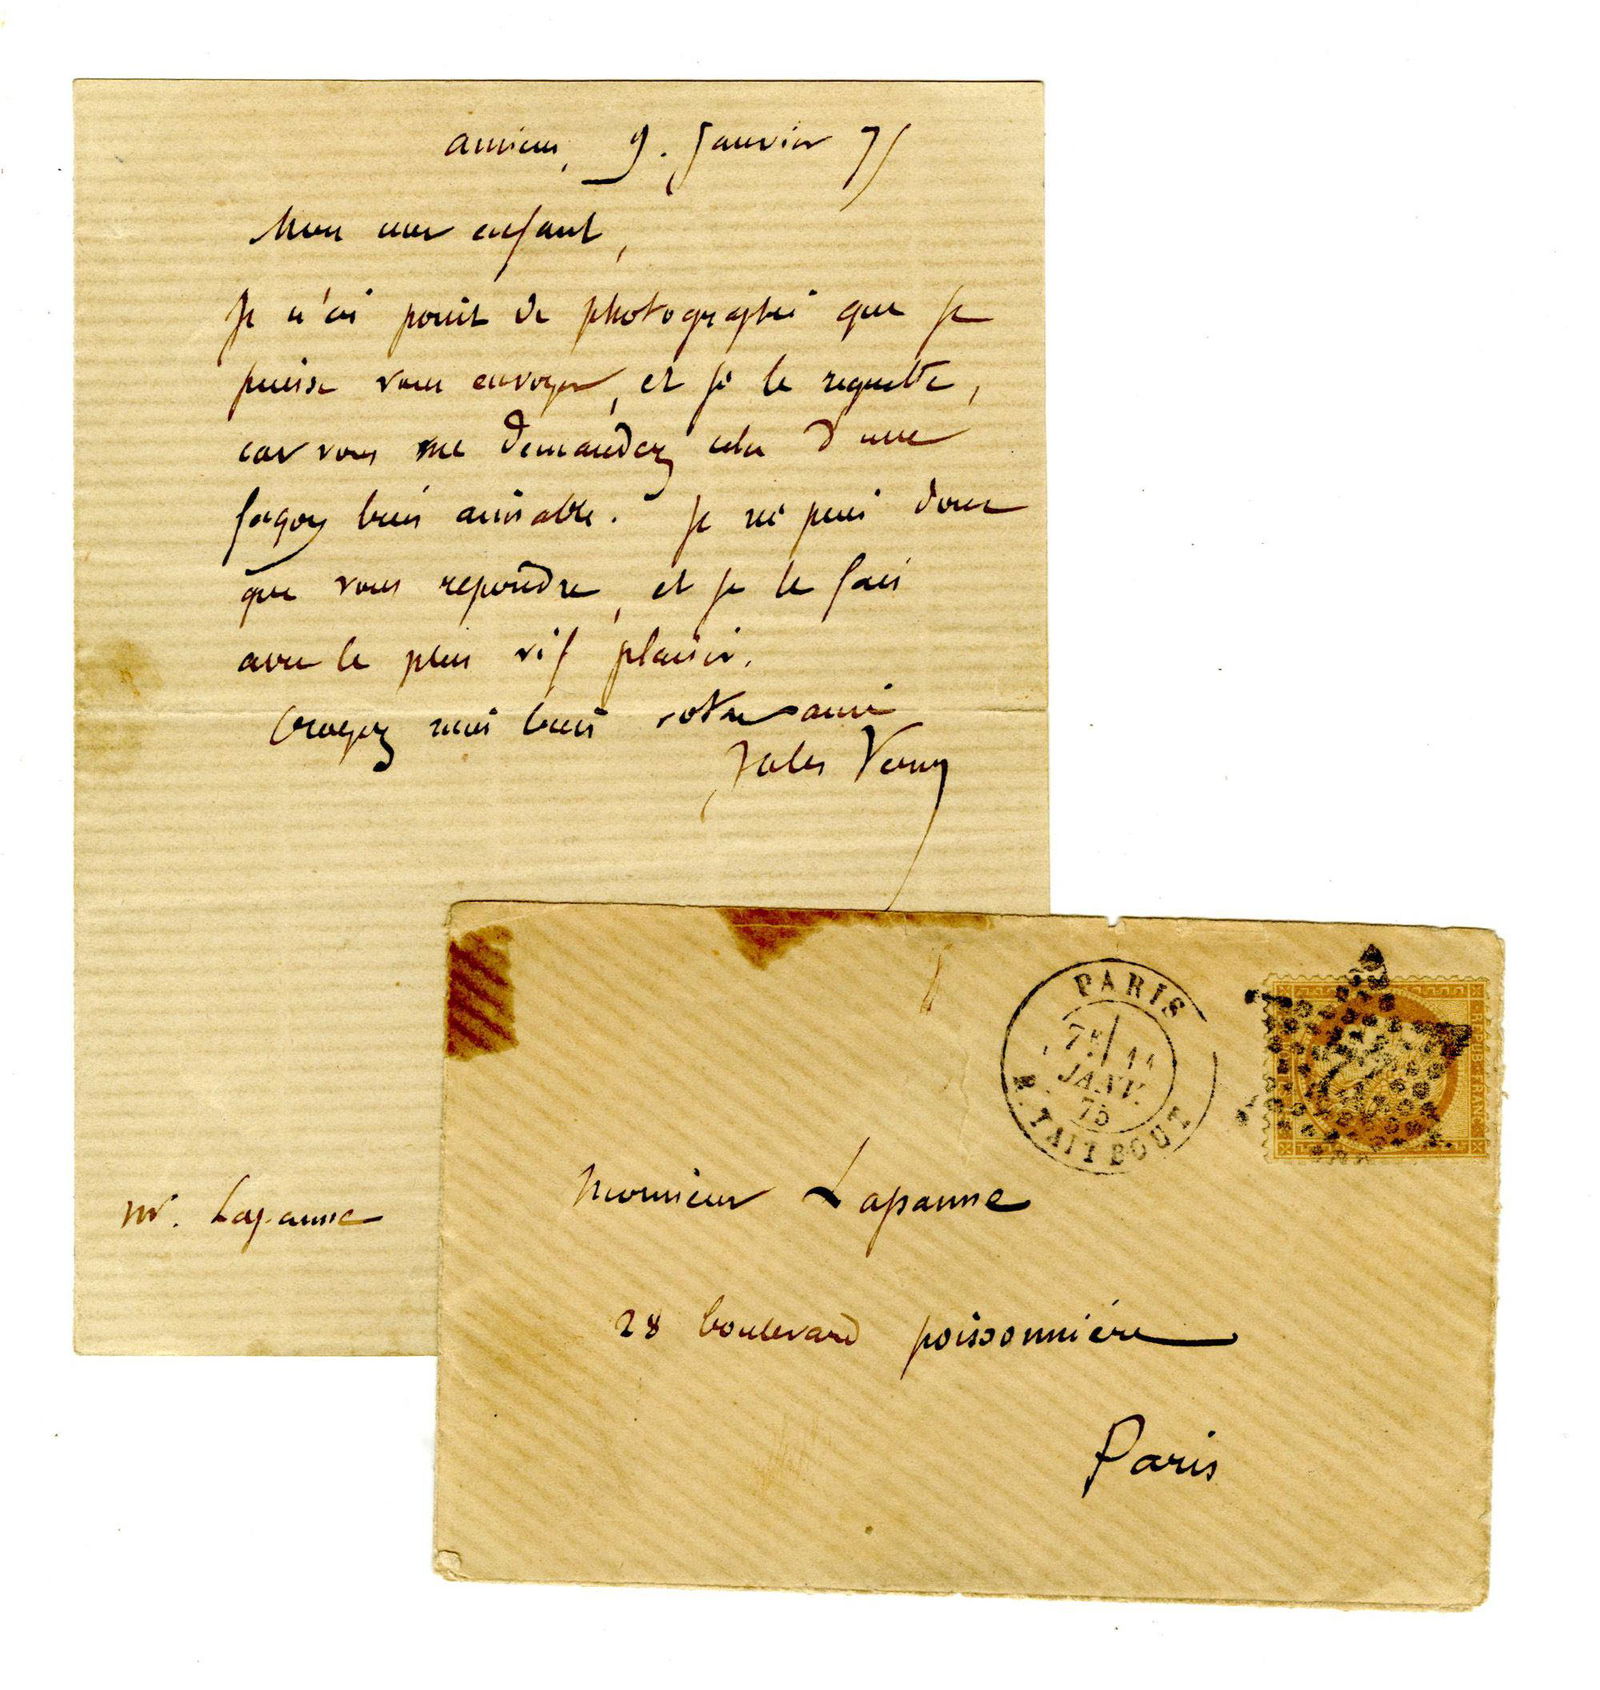 Amiens, 9. Janvier 75
Mon cher enfant,
Je n'ai point de photographie que je
puisse vous envoyer, et je le regrette,
car vous me demandez cela d'une
façon bien aimable. Je ne puis donc
que vous repondre, et je le fais
avec le plus vif plaisir.
Croyez moi bien votre ami
Jules Verne
Mr. Lapanne
PARIS
7E/ 11
JANV.
75
R. TAITBOUT
REPUB. FRANC.
Monsieur Lapanne
28 boulevard poissonnière
Paris